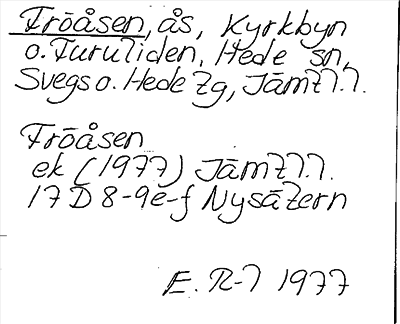 Fröåsen, ås, Kyrkbyn
o. Furuliden, Hede sn,
Svegs o. Hede tg, Jämtl.
Fröåsen
ek (1977) Jämtl.
17 D 8-9e-f Nysätern
E. R-l 1977